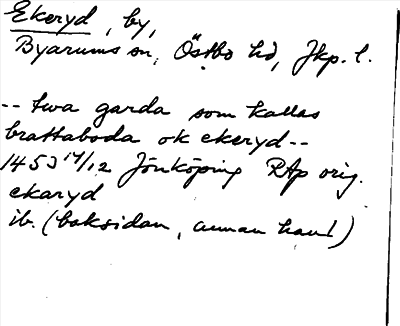 Ekeryd, by,
Byarums sn, Östbo hd, Jkp. l.
-- twa garda som kallas
brattaboda ok ekeryd --
1453 14/12 Jönköping RAp orig.
ekaryd
ib. (baksidan, annan hand)